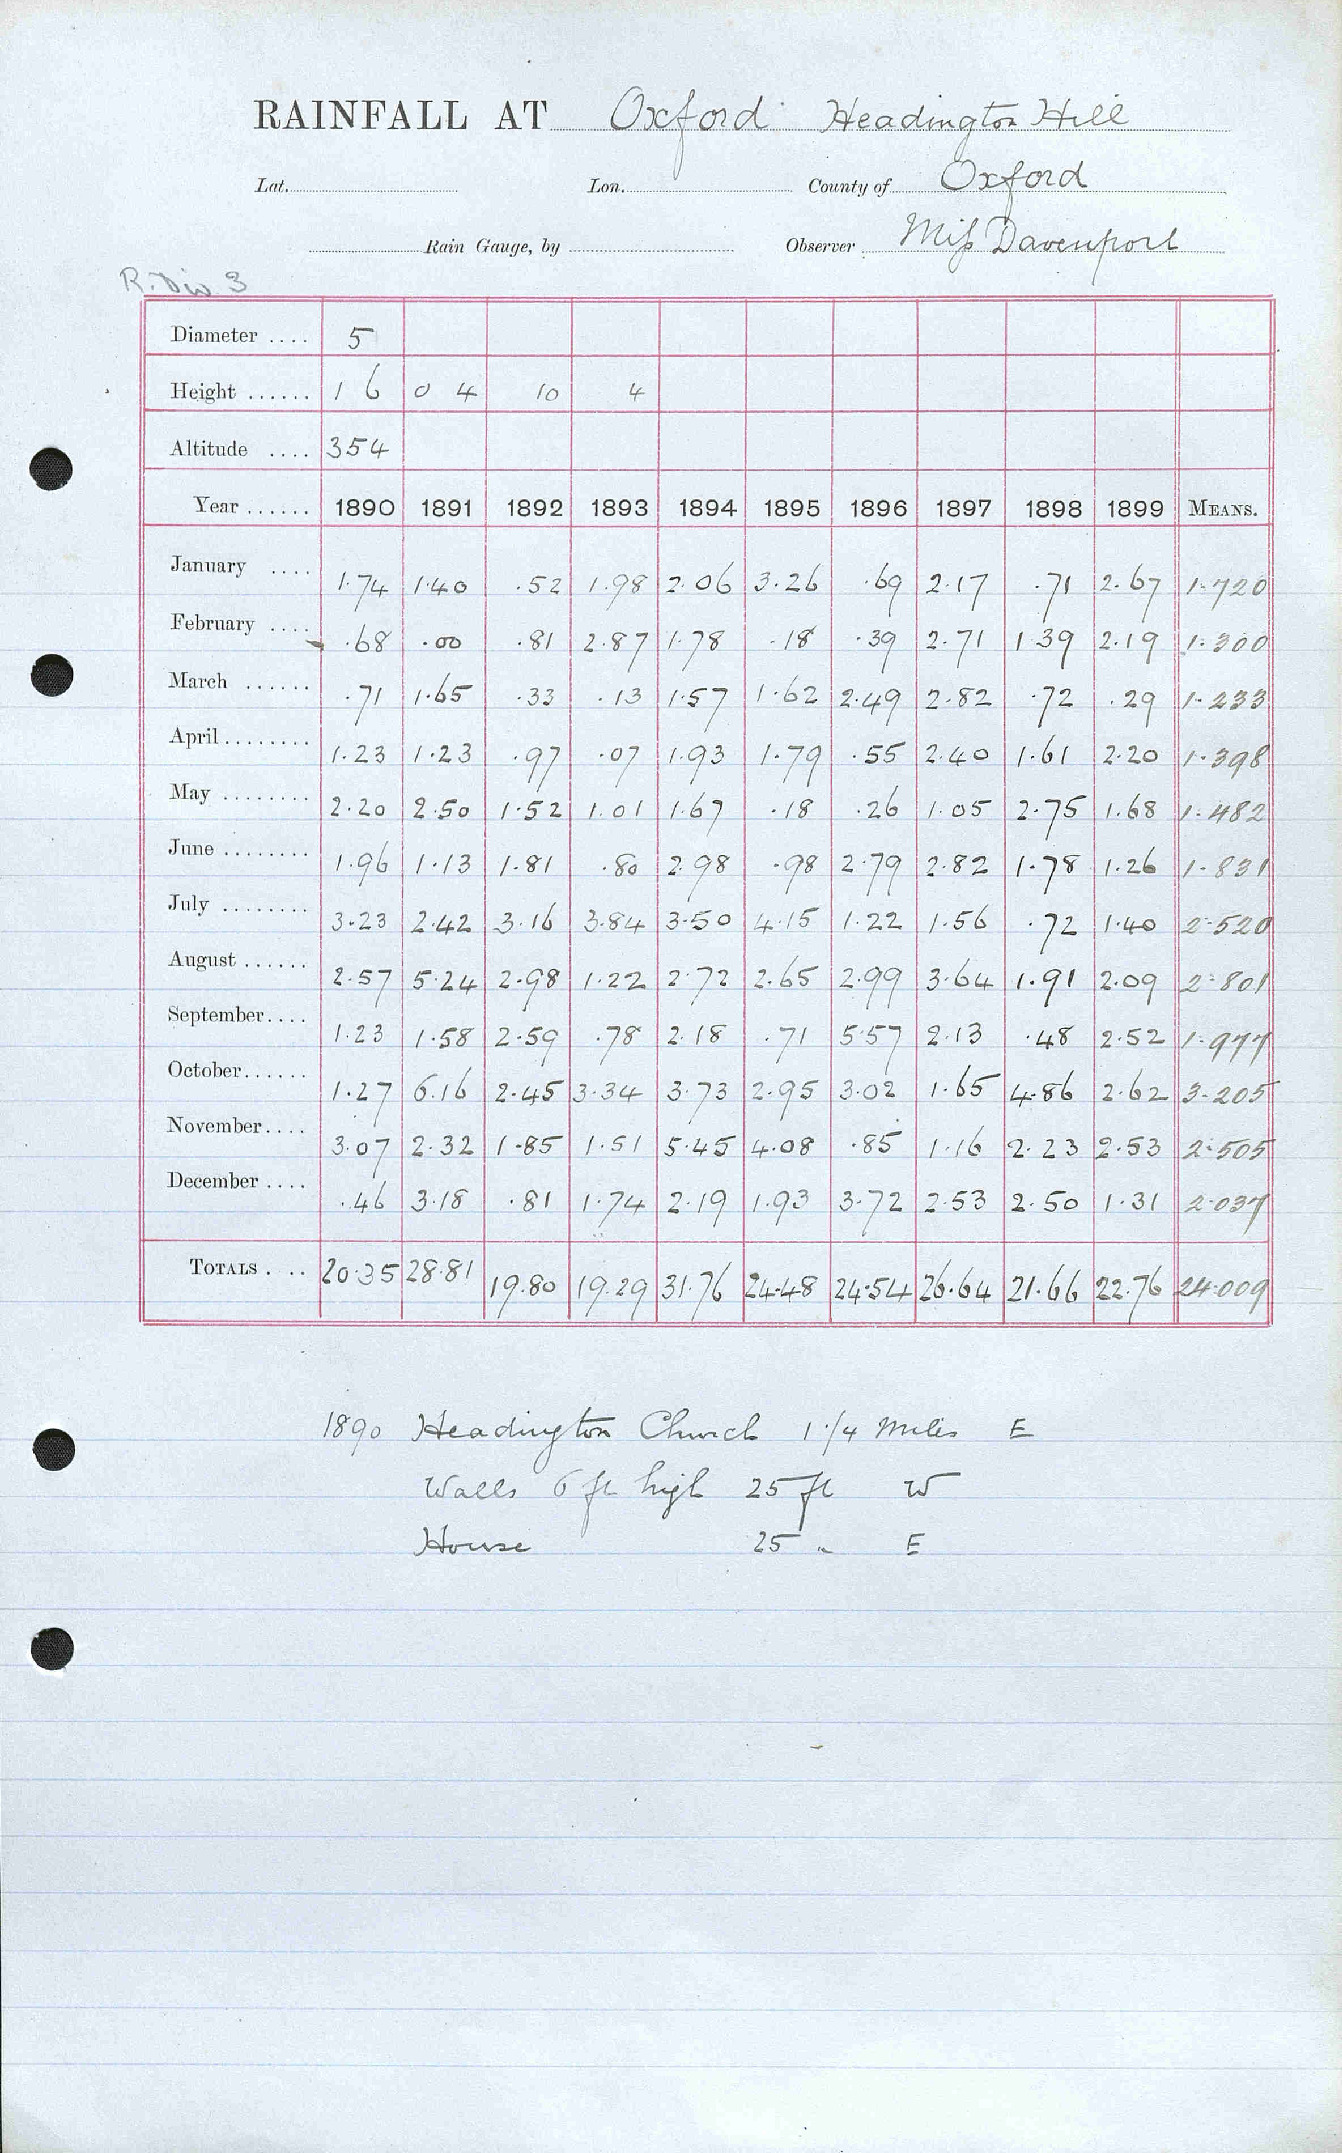 RAINFALL AT Oxford Headington Hill
Lat. Lon. County of Oxford
Rain Gauge, by Observer Miss Davenport
R. Div 3
Diameter .... 5
Height ...... 1 6 0 4 10 4
Altitude .... 354
Year ...... 1890 1891 1892 1893 1894 1895 1896 1897 1898 1899 MEANS.
January .... 1.74 1.40 .52 1.98 2.06 3.26 .69 2.17 .71 2.67 1.720
February .... .68 .00 .81 2.87 1.78 .18 .39 2.71 1.39 2.19 1.300
March ...... .71 1.65 .33 .13 1.57 1.62 2.49 2.82 .72 .29 1.233
April........ 1.23 1.23 .97 .07 1.93 1.79 .55 2.40 1.61 2.20 1.398
May ........ 2.20 2.50 1.52 1.01 1.67 .18 .26 1.05 2.75 1.68 1.482
June ........ 1.96 1.13 1.81 .80 2.98 .98 2.79 2.82 1.78 1.26 1.831
July ........ 3.23 2.42 3.16 3.84 3.50 4.15 1.22 1.56 .72 1.40 2.520
August ...... 2.57 5.24 2.98 1.22 2.72 2.65 2.99 3.64 1.91 2.09 2.801
September.... 1.23 1.58 2.59 .78 2.18 .71 5.57 2.13 .48 2.52 1.977
October...... 1.27 6.16 2.45 3.34 3.73 2.95 3.02 1.65 4.86 2.62 3.205
November.... 3.07 2.32 1.85 1.51 5.45 4.08 .85 1.16 2.23 2.53 2.505
December .... .46 3.18 .81 1.74 2.19 1.93 3.72 2.53 2.50 1.31 2.037
TOTALS . .. 20.35 28.81 19.80 19.29 31.76 24.48 24.54 26.64 21.66 22.76 24.009
1890 Headington Church 1 1/4 Miles E
Walls 6 ft high 25 ft W
House 25 " E